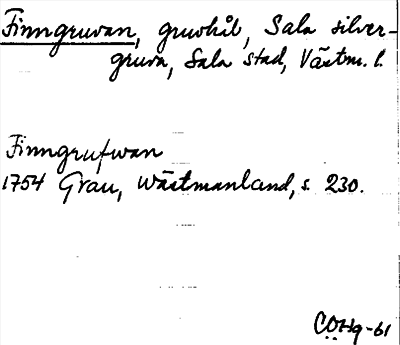 Finngruvan, gruvhål, Sala silver-
gruva, Sala stad, Västm. l.
Finngrufwan
1754 Grau, Wästmanland, s. 230.
CÖHg-61